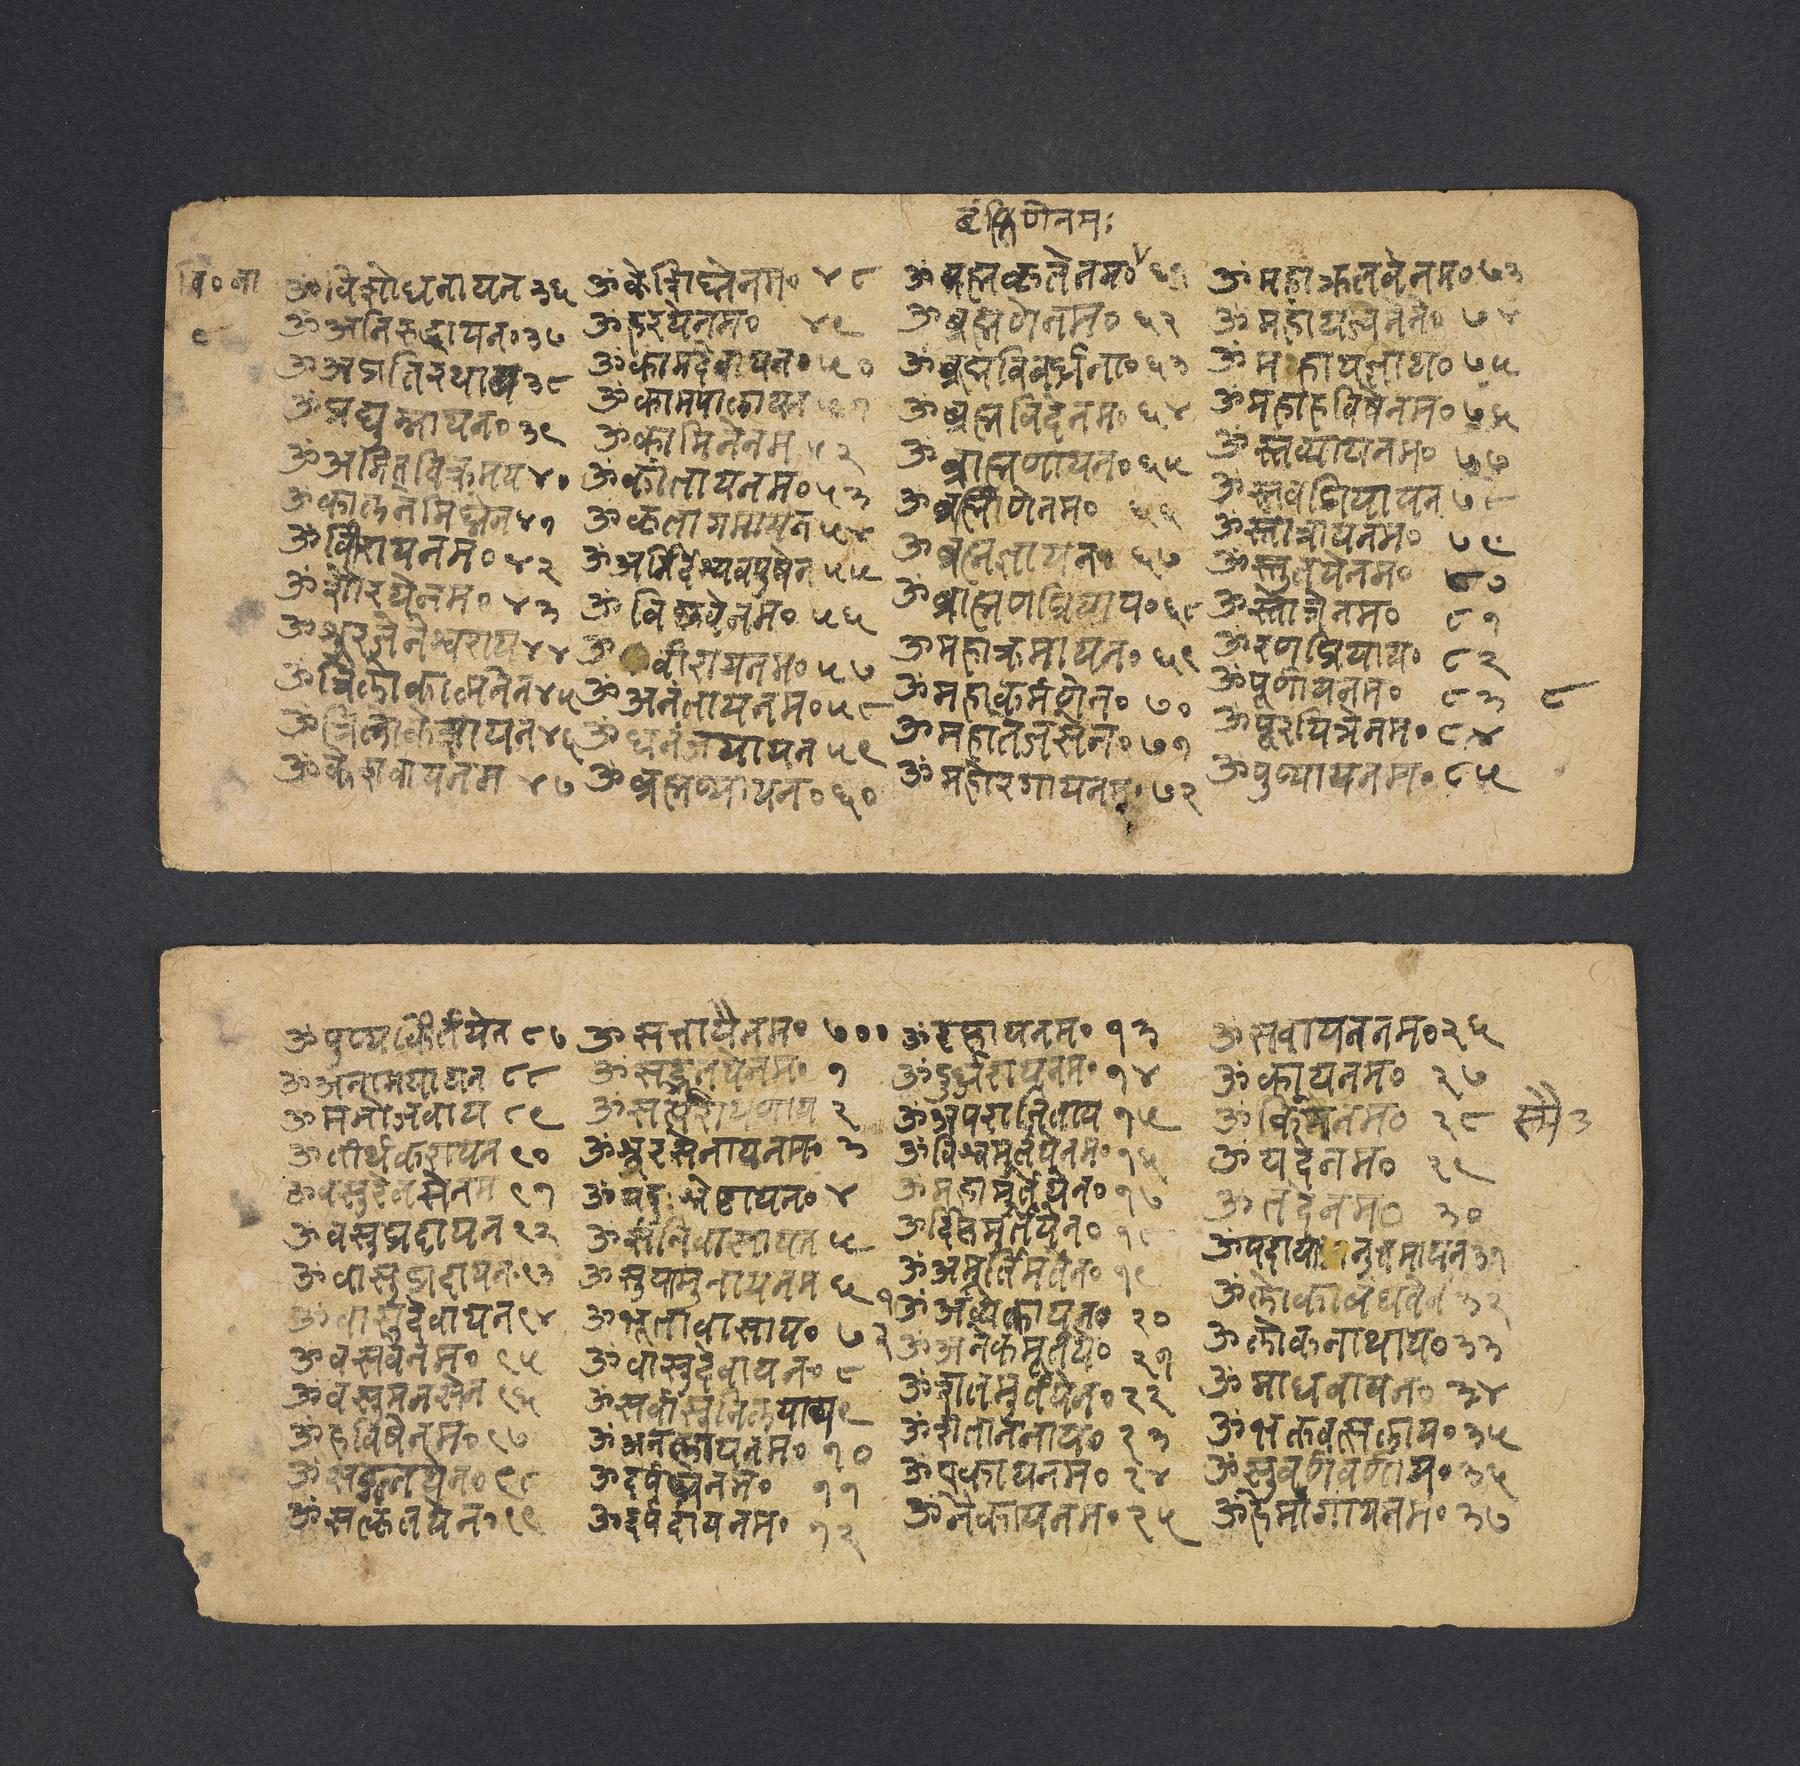 वि॰ ना
८
ॐ विशोधनायन ३६
ॐ अनिरुद्धायन॰ ३७
ॐ अप्रतिरथाय ३८
ॐ प्रद्युम्नायन॰ ३९
ॐ अमितविक्रमाय ४०
ॐ कालनेमिघ्नेन ४१
ॐ वीरायनम॰ ४२
ॐ शौरयेनम॰ ४३
ॐ शूरजनेश्वराय ४४
ॐ त्रिलोकात्मनेन ४५
ॐ त्रिलोकेशायन ४६
ॐ केशवायनम ४७
ॐ केशिघ्नेनम॰ ४८
ॐ हरयेनम॰ ४९
ॐ कामदेवायन॰ ५०
ॐ कामपालायन ५१
ॐ कामिनेनम ५२
ॐ कांतायनम॰ ५३
ॐ कृतागमायन ५४
ॐ अनिर्देश्यवपुषेन ५५
ॐ विष्णवेनम॰ ५६
ॐ वीरायनम॰ ५७
ॐ अनंतायनम॰ ५८
ॐ धनंजयायन ५९
ॐ ब्रह्मण्यायन॰ ६०
ब्रंह्मिणेनमः
ॐ ब्रह्मकृतेनम॰ ६१
ॐ ब्रह्मणेनम॰ ६२
ॐ ब्रह्मविवर्धना॰ ६३
ॐ ब्रह्मविदेनम॰ ६४
ॐ ब्राह्मणायन॰ ६५
ॐ ब्रह्मिणेनम॰ ६६
ॐ ब्रह्मज्ञायन॰ ६७
ॐ ब्राह्मणप्रियाय॰ ६८
ॐ महाक्रमायन॰ ६९
ॐ महाकर्मणेन॰ ७०
ॐ महातेजसेन॰ ७१
ॐ महोरगायनम॰ ७२
ॐ महाक्रतवेनम॰ ७३
ॐ महायज्विनेन॰ ७४
ॐ महायज्ञाय॰ ७५
ॐ महाहविषेनम॰ ७६
ॐ स्तव्यायनम॰ ७७
ॐ स्तवप्रियायन ७८
ॐ स्तोत्रायनम॰ ७९
ॐ स्तुतयेनम॰ ८०
ॐ स्तोत्रेनम॰ ८१
ॐ रणप्रियाय॰ ८२
ॐ पूर्णायनम॰ ८३
ॐ पूरयित्रेनम॰ ८४
ॐ पुण्यायनम॰ ८५
८
ॐ पुण्यकीर्तयेन ८७
ॐ अनामयायन ८८
ॐ मनोजवाय ८९
ॐ तीर्थकरायन ९०
ॐ वसुरेतसेनम ९१
ॐ वसुप्रदायन ९२
ॐ वासुप्रदायन॰ ९३
ॐ वासुदेवायन ९४
ॐ वसवेनम॰ ९५
ॐ वसुमनसेन ९६
ॐ हविषेनम॰ ९७
ॐ सद्गतयेन॰ ९८
ॐ सत्कृतयेन॰ ९९
ॐ सत्तायैनम॰ ७००
ॐ सद्भूतयेनम॰ १
ॐ सत्परायणाय २
ॐ शूरसेनायनम॰ ३
ॐ यदुश्रेष्ठायन॰ ४
ॐ संनिवासायन ५
ॐ सुयामुनायनम ६
ॐ भूतावासाय॰ ७
ॐ वासुदेवायन॰ ८
ॐ सर्वासुनिलयाय ९
ॐ अनलायनम॰ १०
ॐ दर्पघ्नेनम॰ ११
ॐ दर्पदायनम॰ १२
ॐ दृप्तायनम॰ १३
ॐ दुर्धरायनम॰ १४
ॐ अपराजिताय १५
ॐ विश्वमूर्तयेनम॰ १६
ॐ महामूर्तयेन॰ १७
ॐ दिप्तिमूर्तयेन॰ १८
ॐ अमूर्तिमतेन॰ १९
ॐ अव्यक्तायन॰ २०
ॐ अनेकमूर्तये॰ २१
ॐ शतमूर्तयेन॰ २२
ॐ शताननाय॰ २३
ॐ एकायनम॰ २४
ॐ नैकायनम॰ २५
ॐ सवायननम॰ २६
ॐ कायनम॰ २७
ॐ किमेनम॰ २८
ॐ यदेनम॰ २९
ॐ तदेनम॰ ३०
ॐ पदायानुत्तमायन ३१
ॐ लोकबंधवेन ३२
ॐ लोकनाथाय॰ ३३
ॐ माधवायन॰ ३४
ॐ भक्तवत्सलाय॰ ३५
ॐ सुवर्णवर्णाय॰ ३६
ॐ हेमांगायनम॰ ३७